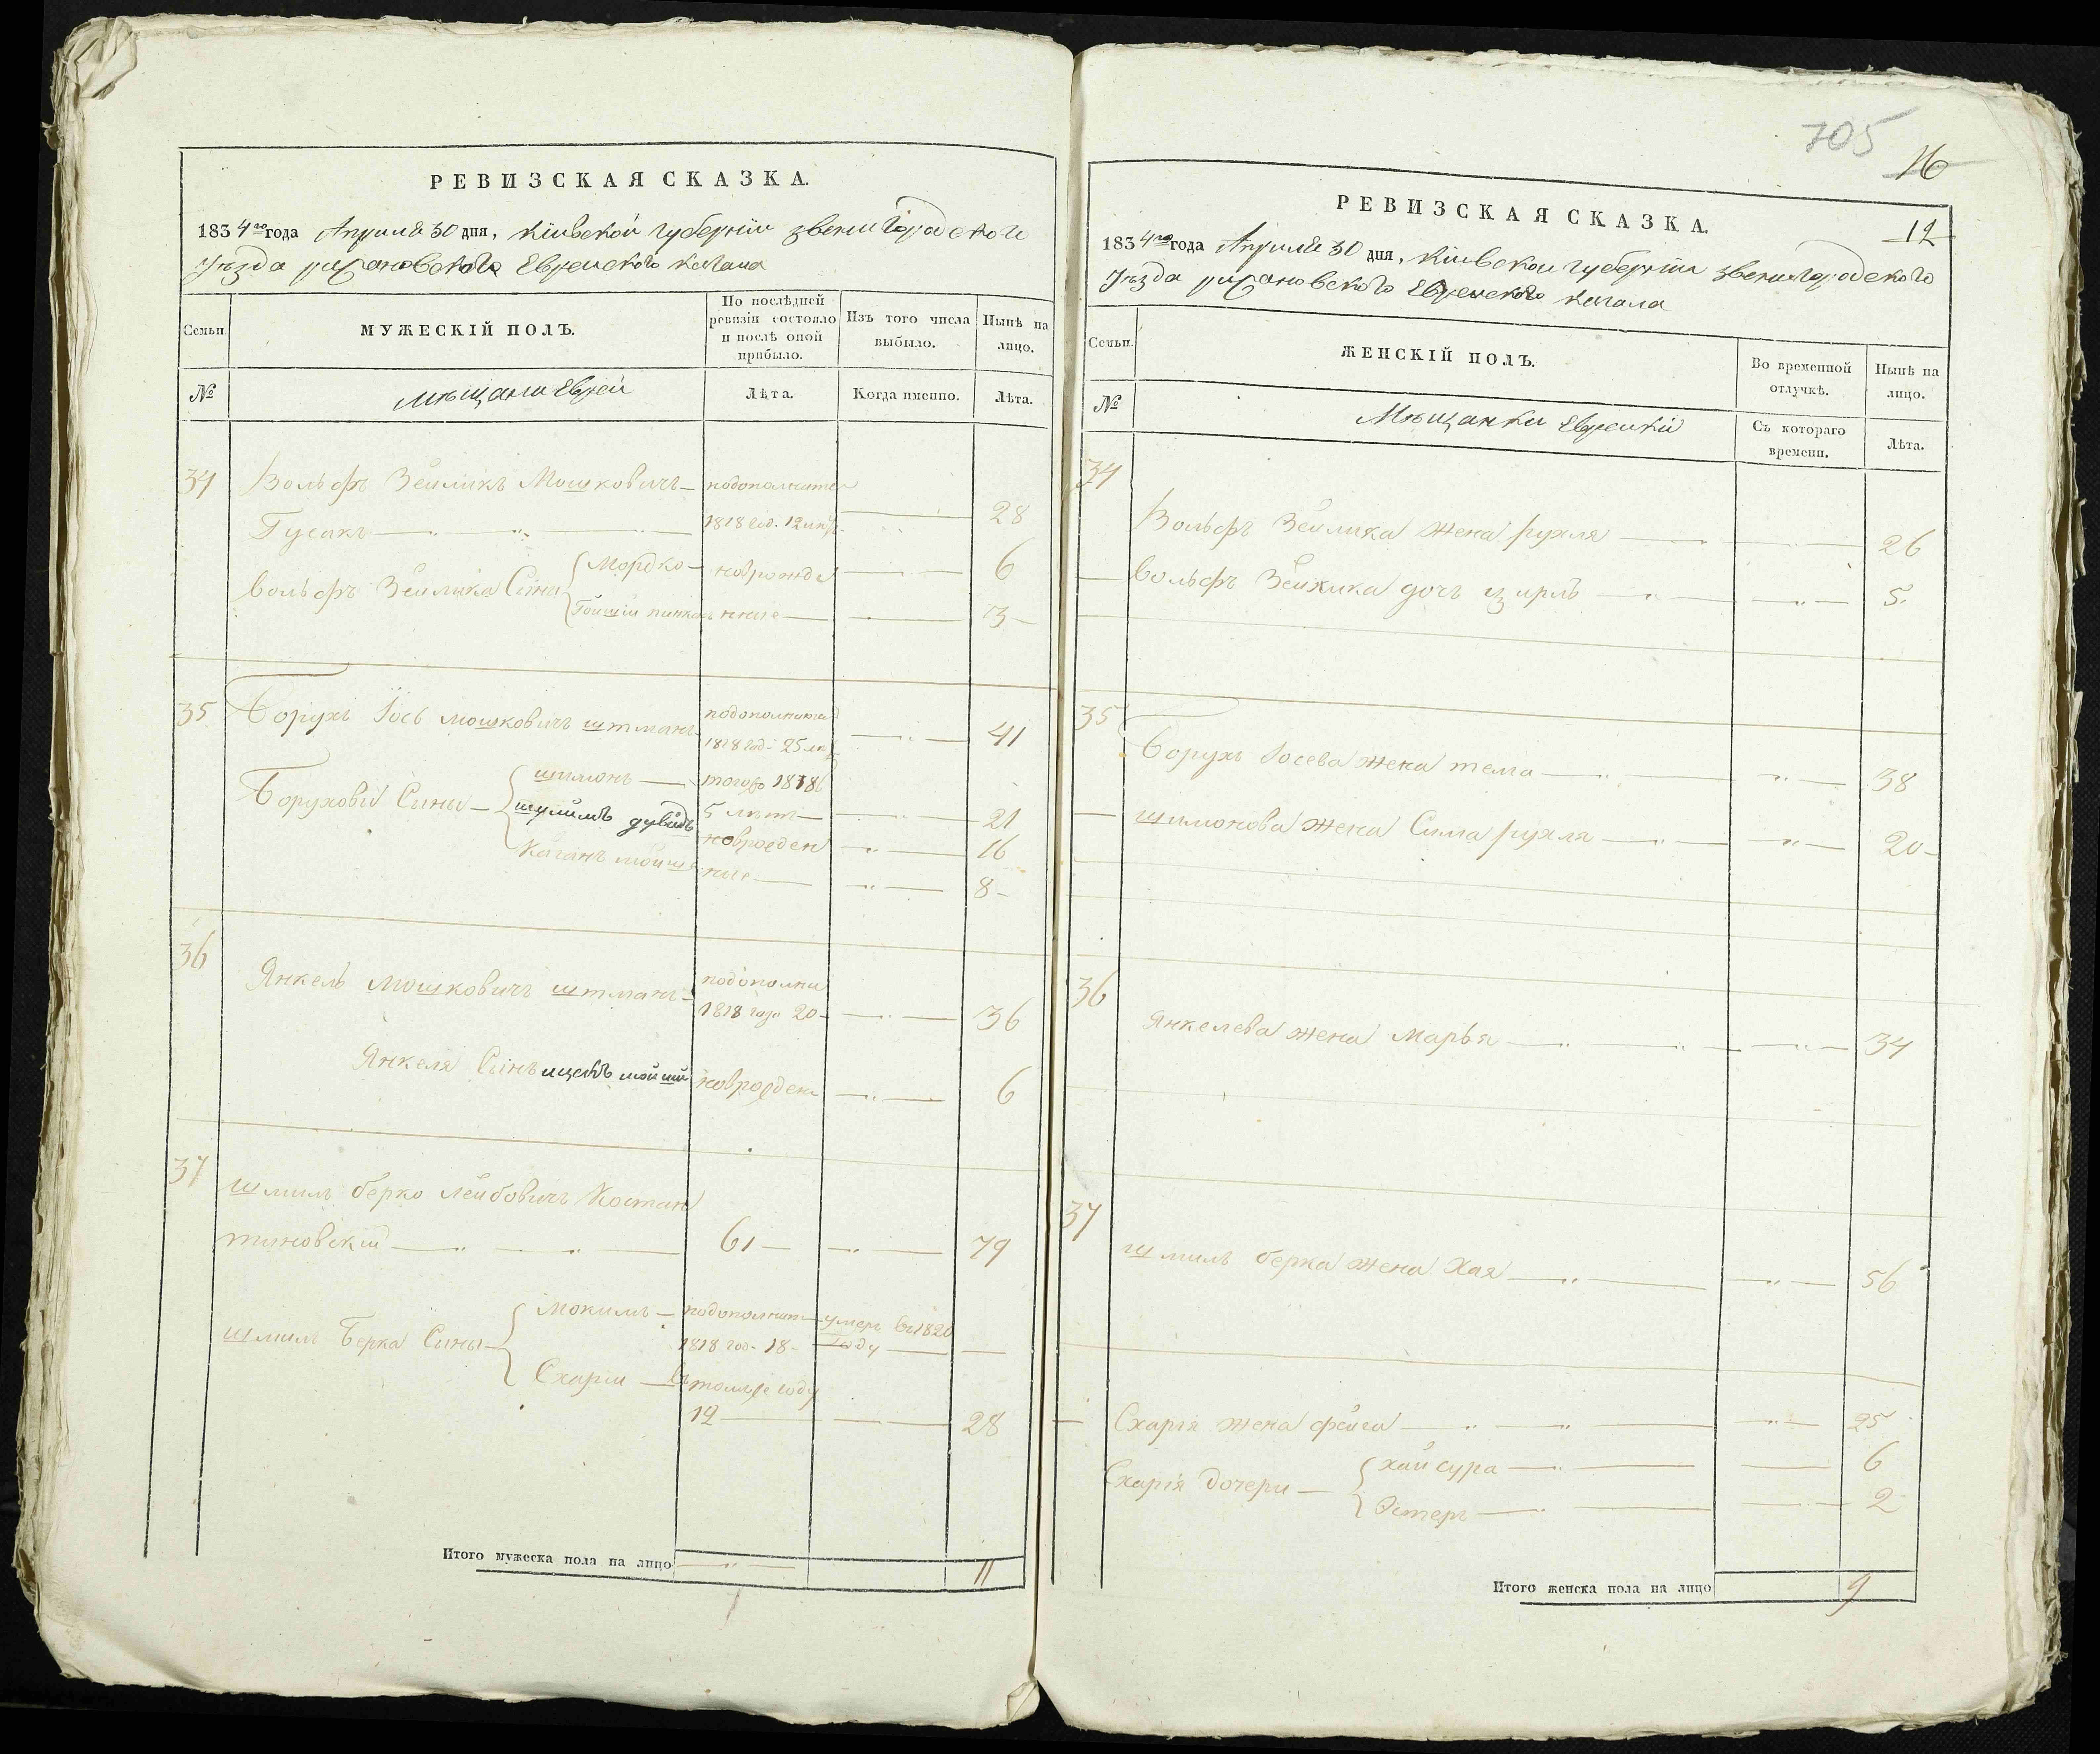 РЕВИЗСКАЯ СКАЗКА.
1834го года Апреля 30 дня, Кіевской губерніи звенигородского
Уезда рижановского Еврейского кагала
Семьи.
МУЖЕСКІЙ ПОЛЪ.
По послѣдней ревизіи состояло и послѣ оной прибыло.
Изъ того числа выбыло.
Нынѣ на лицо.
№
мѣщани Евреи
Лѣта.
Когда именно.
Лѣта.
34 Вольфъ Зейликъ Мошковичъ — подополните
Гусакъ — 1818 год. 12 лѣт — 28
Вольфъ Зейлика Сыны Мордко — новрожде — 6
пинкас нные — 3
35 Борухъ Іось мошковичъ штманъ подополнител
1818 год. 25 лѣт — 41
Боруховы Сыны — шимонъ — тогоже 1818
5 лѣт — 21
шулимъ дувидъ новрожден — 16
Каганъ мойше ные — 8
36 Янкель мошковичъ штманъ подополни
1818 года 20 — 36
Янкеля Сынъ ицекъ мойше новрожден — 6
37 шмиль берко лейбовичъ Костан
тиновский — 61 — 79
шмиль Берка Сыны — Мокимъ — подополнит умеръ въ 1820
1818 год. 18 — году —
Схария — въ томже году
12 — 28
Итого мужеска пола на лицо — 11
705
16
12
РЕВИЗСКАЯ СКАЗКА.
1834го года Апреля 30 дня, Кіевской губерніи звенигородского
Уезда рижановского Еврейского кагала
Семьи.
ЖЕНСКІЙ ПОЛЪ.
Во временной отлучкѣ.
Нынѣ на лицо.
№
Мѣщанки Еврейкій
Съ котораго времени.
Лѣта.
34
Вольфъ Зейлика жена рухля — 26
Вольфъ Зейлика дочъ цирлъ — 5
35
Борухъ Іосева жена тема — 38
шимонова жена Сима рухля — 20
36
Янкелева жена Марья — 34
37
шмиль берка жена Хая — 56
Схария жена фейга — 25
Схарія дочери — хай сура — 6
Эстеръ — 2
Итого женска пола на лицо 9